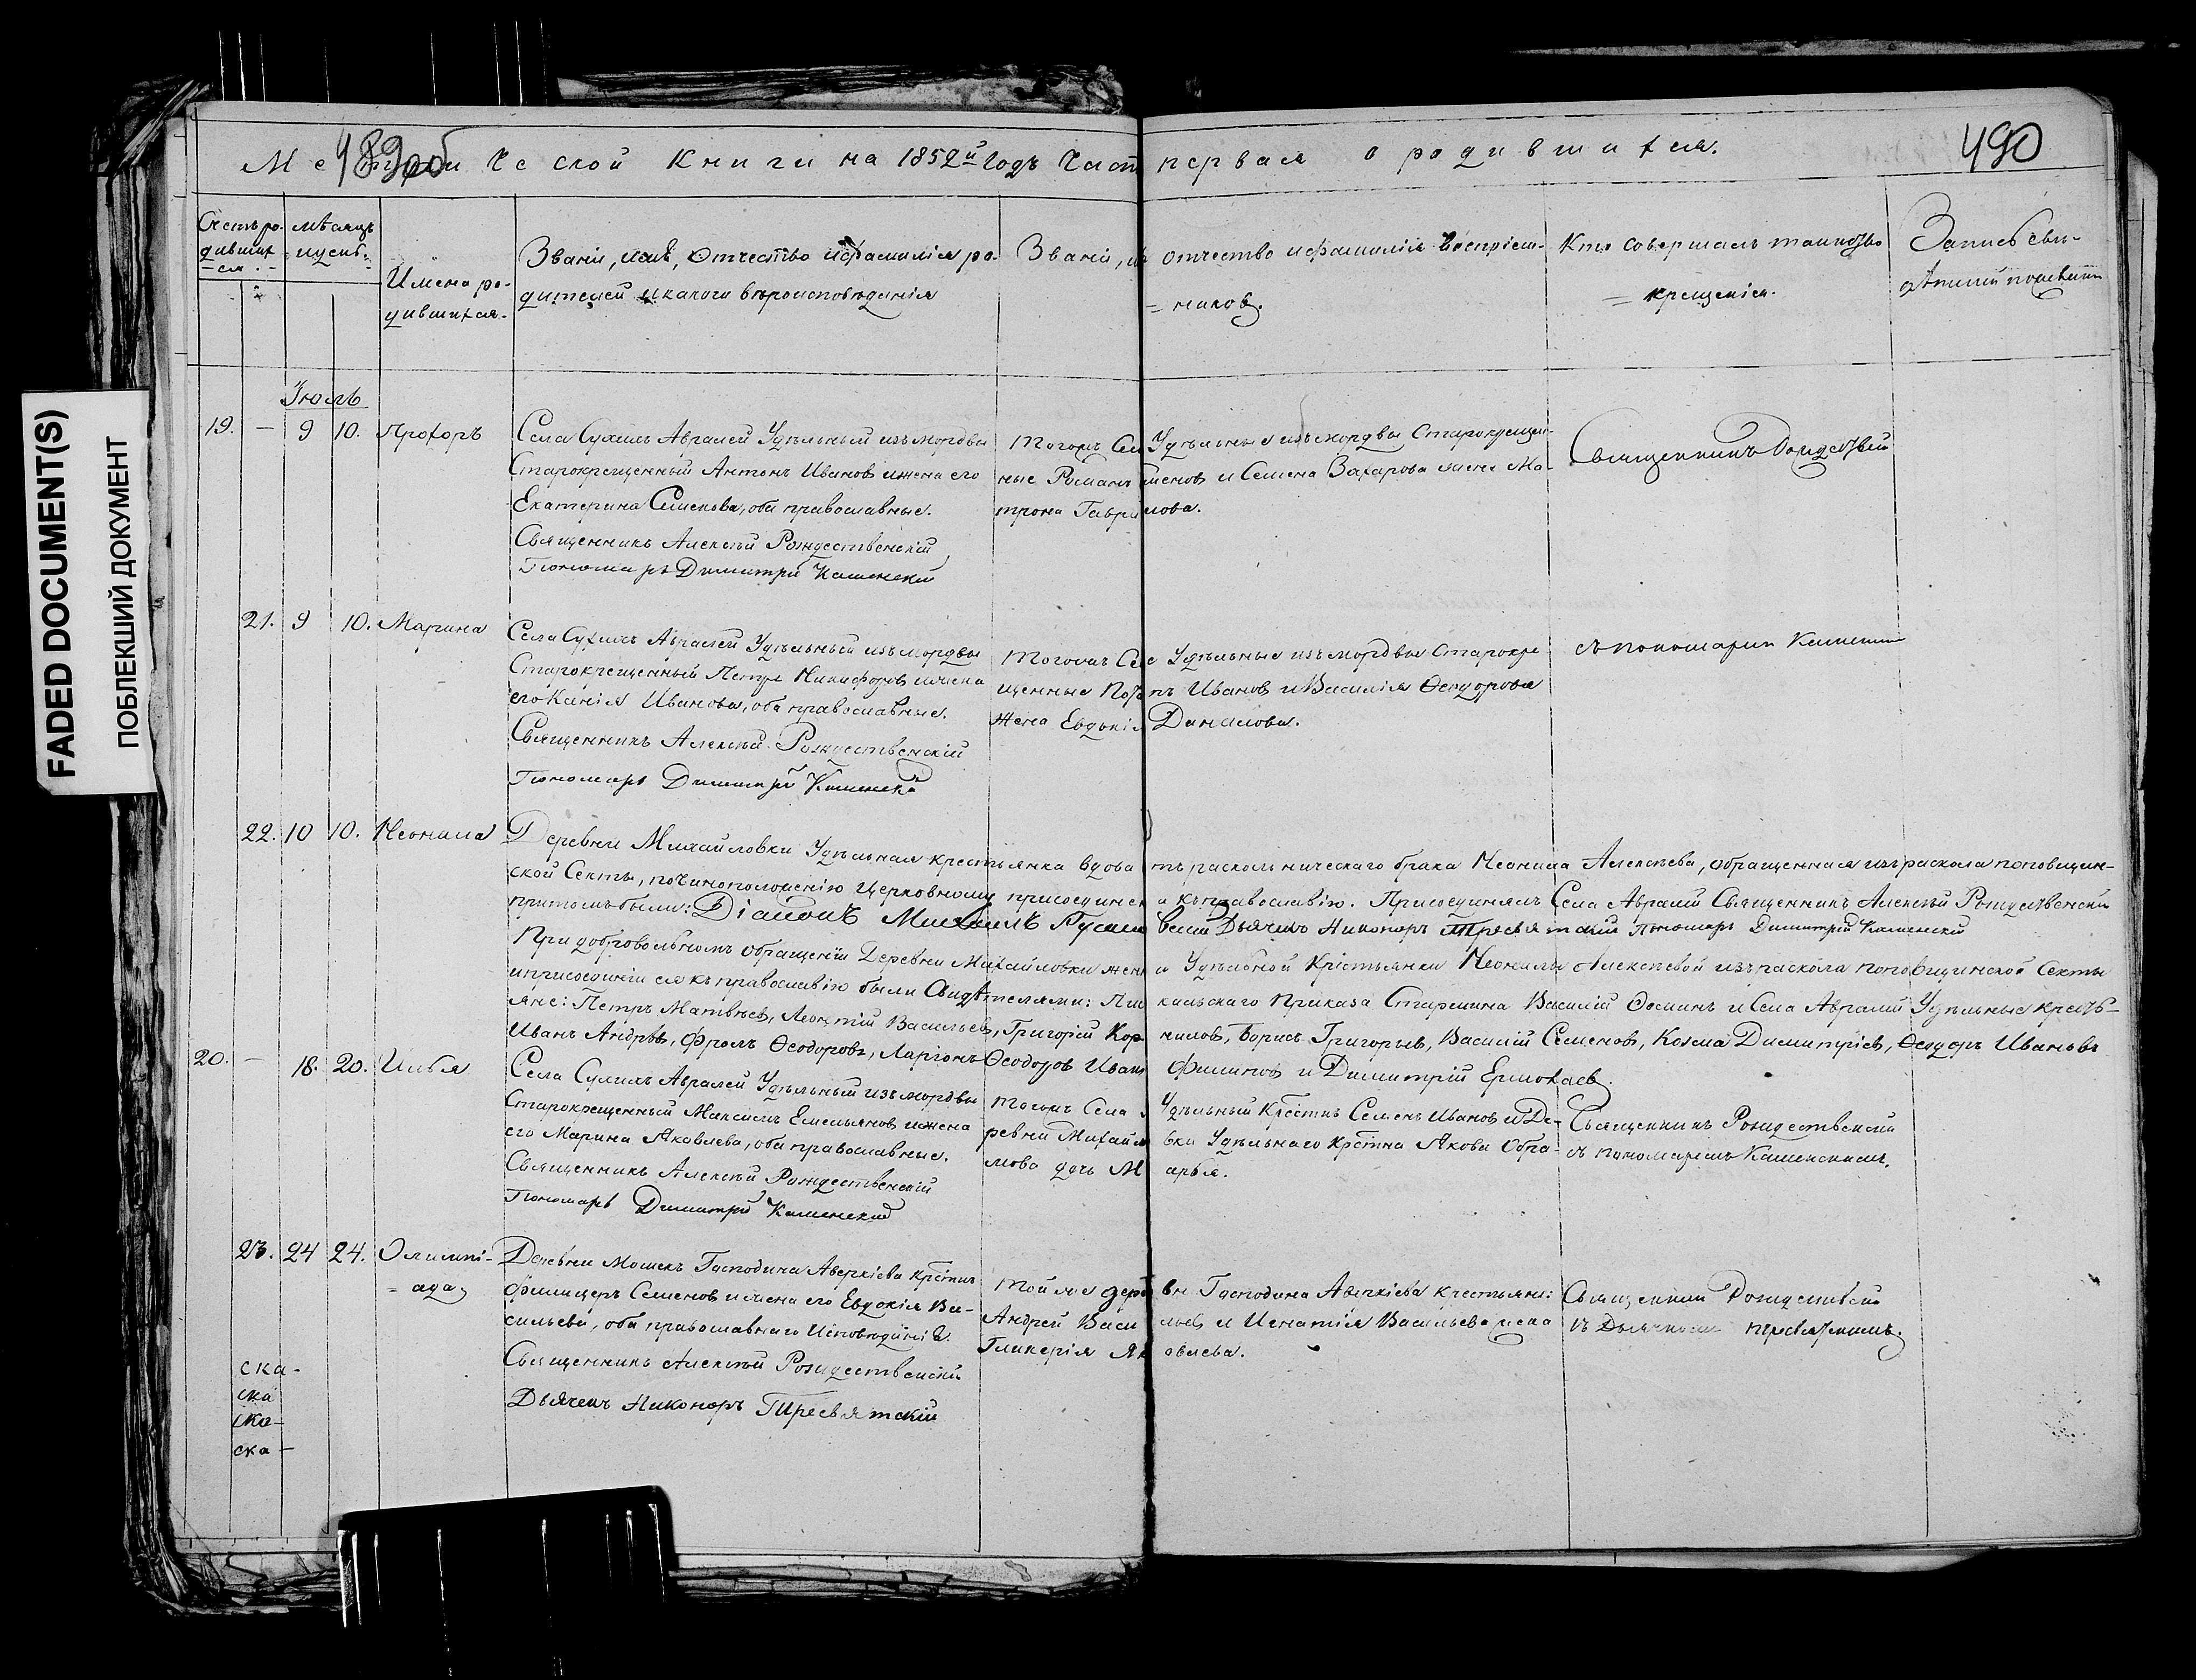 FADED DOCUMENT(S)
ПОБЛЕКШИЙ ДОКУМЕНТ
489об
490
Метрической Книги на 1852й Годъ Част первая о родившихся.
Счетъ ро-
дивших
ся.
мѣсяцъ
и день
Имена ро-
дившихся.
Званіи, имя, Отчество и фамилія ро-
дителей и какого вѣроисповѣданія
Званіи, и отчество и фамилія воспріем-
никовъ.
Кто совершалъ таинство
крещенія.
Запись сви-
Іюль
19. — 9 10. Прохоръ
Села Сухихъ Авралей Удѣльный изъ мордвы
Старокрещенный Антонъ Иванов и жена его
Екатерина Семенова, оба православные.
Священникъ Алексѣй Рождественскій
Пономарь Димитрій Каменскій
Тогожъ Сел Удѣльные изъ мордвы Старокрещен-
ные Романъ Семенов и Семена Захарова жена Ма-
трона Гаврилова.
Священникъ Рождествен
21. 9 10. Марина
Села Сухихъ Авралей Удѣльный изъ мордвы
Старокрещенный Петръ Никифоров и жена
его Ксенія Иванова, оба православные.
Священникъ Алексѣй Рождественскій
Пономарь Димитрій Каменскій
Тогожъ Села Удѣльные изъ мордвы Старокре
щенные Иванов и Василія Ѳеодорова
жена Евдокія Данилова.
съ пономаремъ Каменским
22. 10 10. Неонила
Деревни Михайловки Удѣльная крестьянка вдова отъ раскольническаго брака Неонила Алексѣева, обращенная изъ раскола поповщин-
ской Секты, по чиноположенію Церковному присоединена къ православію. Присоединялъ Села Авралей Священникъ Алексѣй Рождественскій
притомъ были: Діаконъ Михаилъ Дьячекъ Никаноръ Тресвятскій Пономарь Димитрій Каменскій
При добровольномъ обращеніи Деревни Михайловки жены Удѣльной Крестьянки Неонилы Алексѣевой изъ раскола поповщинской Секты
и присоединіи ея къ православію были Свидѣтелями: Приказа Старшина Василій Ѳоминъ и Села Авралей Удѣльные крестъ-
яне: Петръ Матвѣев, Леонтій Васильев, Григорій Корнилов, Борисъ Григорьев, Василій Семенов, Козма Димитріев, Ѳеодоръ Ивановъ
Иванъ Андрѣев, Фролъ Ѳеодоров, Ларіонъ Ѳеодоров Иван Филипов и Димитрій Ермолаев.
20. — 18. 20. Илья
Села Сухихъ Авралей Удѣльный изъ мордвы
Старокрещенный Максимъ Емельянов и жена
его Марина Яковлева, оба православные.
Священникъ Алексѣй Рождественскій
Пономарь Димитрій Каменскій
Тогожъ Села Удѣльный Крестнъ Семенъ Иванов и Де-
ревни Михайловки Удѣльнаго крестна Якова Абра-
мова дочь Марья.
Священникъ Рождественскій
съ пономаремъ Каменскимъ.
23. 24 24. Олимпі-
ада
Деревни Мошекъ Господина Аверкіева крестнъ
Семенов и жена его Евдокія Ва-
сильева, оба православнаго Исповѣданія.
Священникъ Алексѣй Рождественскій
Дьячекъ Никаноръ Тресвятскій
Той же деревни Господина Аверкіева крестьяне:
Андрей Васильев и Игнатія Васильева жена
Гликерія Яковлева.
Священникъ Рождественскій
съ Дьячкомъ Тресвятскимъ.
ска-
ска
ска-
ска-